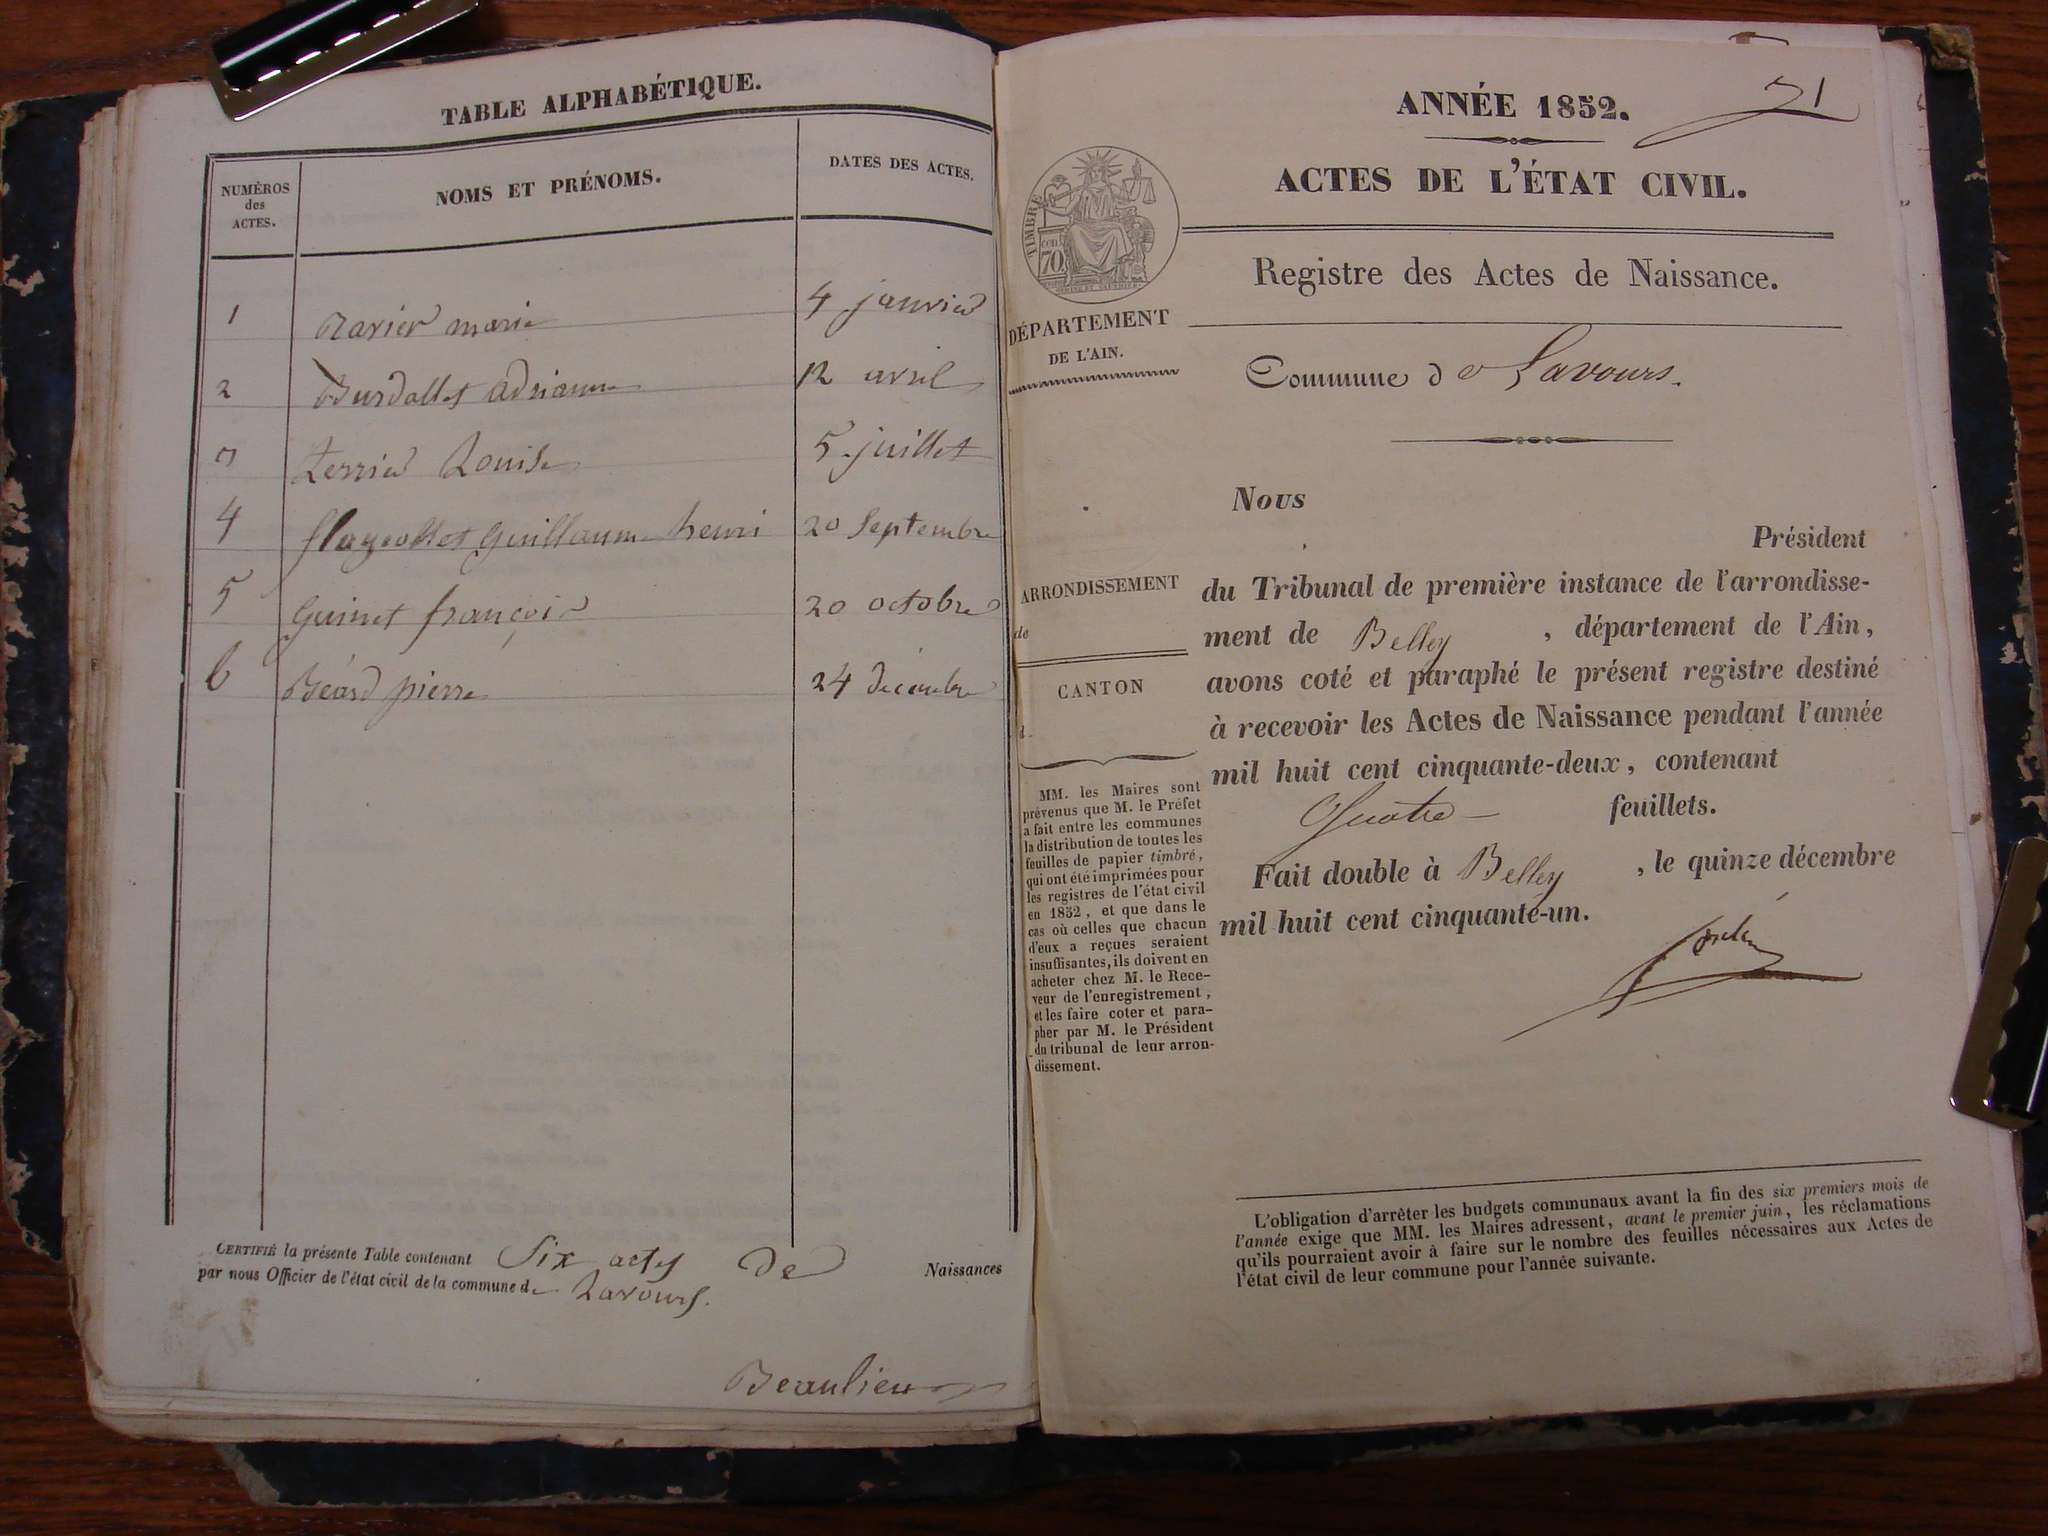 TABLE ALPHABÉTIQUE.
NUMÉROS
des
ACTES.
NOMS ET PRÉNOMS.
DATES DES ACTES.
1 Ravier marie 4 janvier
2 Burdallet adrianne 12 avril
3 Terrier Louise 5 juillet
4 flageollet Guillaume henri 20 Septembre
5 Guinet françois 20 octobre
6 Béard pierre 24 décembre
CERTIFIÉ la présente Table contenant Six actes de Naissances
par nous Officier de l'état civil de la commune de Lavours.
Beaulieu
ANNÉE 1852.
1
ACTES DE L'ÉTAT CIVIL.
TIMBRE
cent
70
Registre des Actes de Naissance.
DÉPARTEMENT
DE L'AIN.
Commune de Lavours.
Nous
Président
du Tribunal de première instance de l'arrondisse-
ment de Belley , département de l'Ain,
avons coté et paraphé le présent registre destiné
à recevoir les Actes de Naissance pendant l'année
mil huit cent cinquante-deux, contenant
Quatre feuillets.
Fait double à Belley , le quinze décembre
mil huit cent cinquante-un.
ARRONDISSEMENT
de
CANTON
d
MM. les Maires sont
prévenus que M. le Préfet
a fait entre les communes
la distribution de toutes les
feuilles de papier timbré,
qui ont été imprimées pour
les registres de l'état civil
en 1852, et que dans le
cas où celles que chacun
d'eux a reçues seraient
insuffisantes, ils doivent en
acheter chez M. le Rece-
veur de l'enregistrement,
et les faire coter et para-
pher par M. le Président
du tribunal de leur arron-
dissement.
L'obligation d'arrêter les budgets communaux avant la fin des six premiers mois de
l'année exige que MM. les Maires adressent, avant le premier juin, les réclamations
qu'ils pourraient avoir à faire sur le nombre des feuilles nécessaires aux Actes de
l'état civil de leur commune pour l'année suivante.